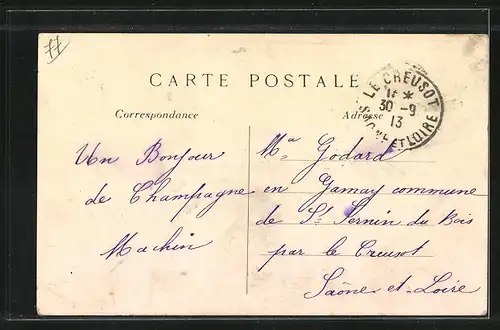 CARTE POSTALE
Correspondance
Adresse
LE CREUSOT
30 -9
13
SAONE ET LOIRE
Un Bonjour
de Champagne
Machin
Godard
en Gamay commune
de St Sernin du Bois
par le Creusot
Saône-et-Loire